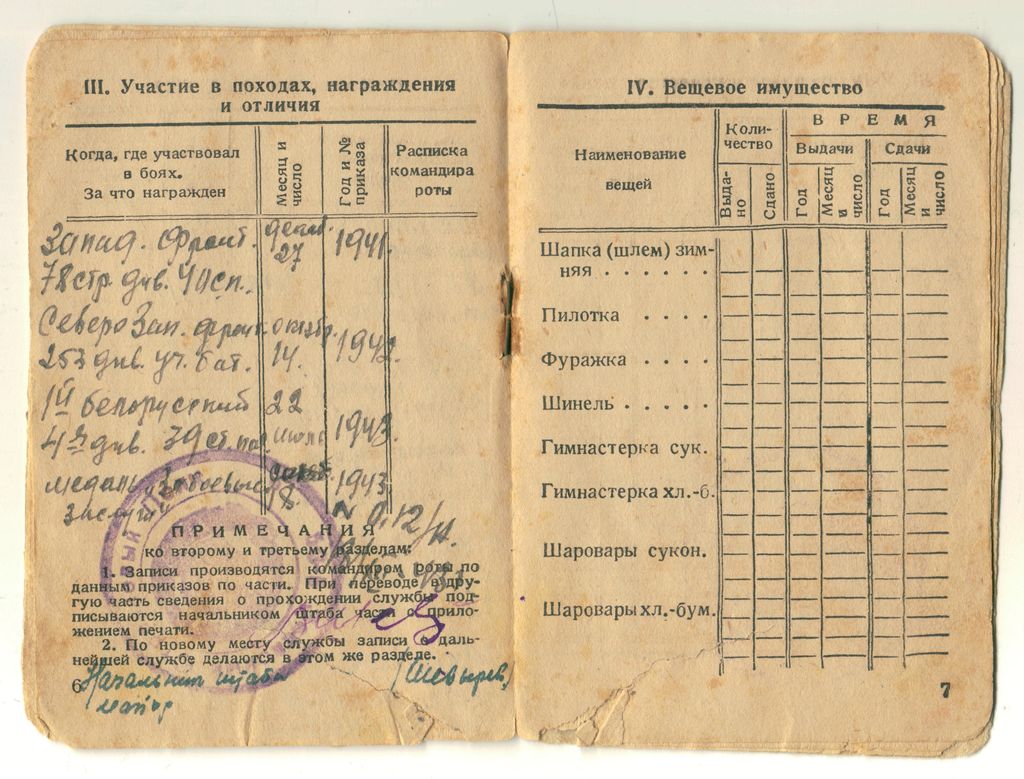 III. Участие в походах, награждения
и отличия
Когда, где участвовал
в боях.
За что награжден
Месяц и
число
Год и №
приказа
Расписка
командира
роты
Запад. фронт. декаб. 27 1941.
78 стр. див. 40 сп.
Северо Зап. фронт октябр. 1942.
253 див. уч. бат. 14.
1й белорусский 22 1943.
4я див. 39 июля
медаль За боевые 18 1943
заслуги N
ПРИМЕЧАНИЯ
ко второму и третьему разделам:
1. Записи производятся командиром роты по
данным приказов по части. При переводе в дру-
гую часть сведения о прохождении службы под-
писываются начальником штаба части с прило-
жением печати.
2. По новому месту службы записи о даль-
нейшей службе делаются в этом же разделе.
6 Начальник штаба (Шевырев)
майор
IV. Вещевое имущество
Наименование
вещей
Коли-
чество
ВРЕМЯ
Выдачи
Сдачи
Выда-
но
Сдано
Год
Месяц
и
число
Год
Месяц
и
число
Шапка (шлем) зим-
няя . . . . . .
Пилотка . . . .
Фуражка . . . .
Шинель . . . . .
Гимнастерка сук.
Гимнастерка хл.-б.
Шаровары сукон.
Шаровары хл.-бум.
7